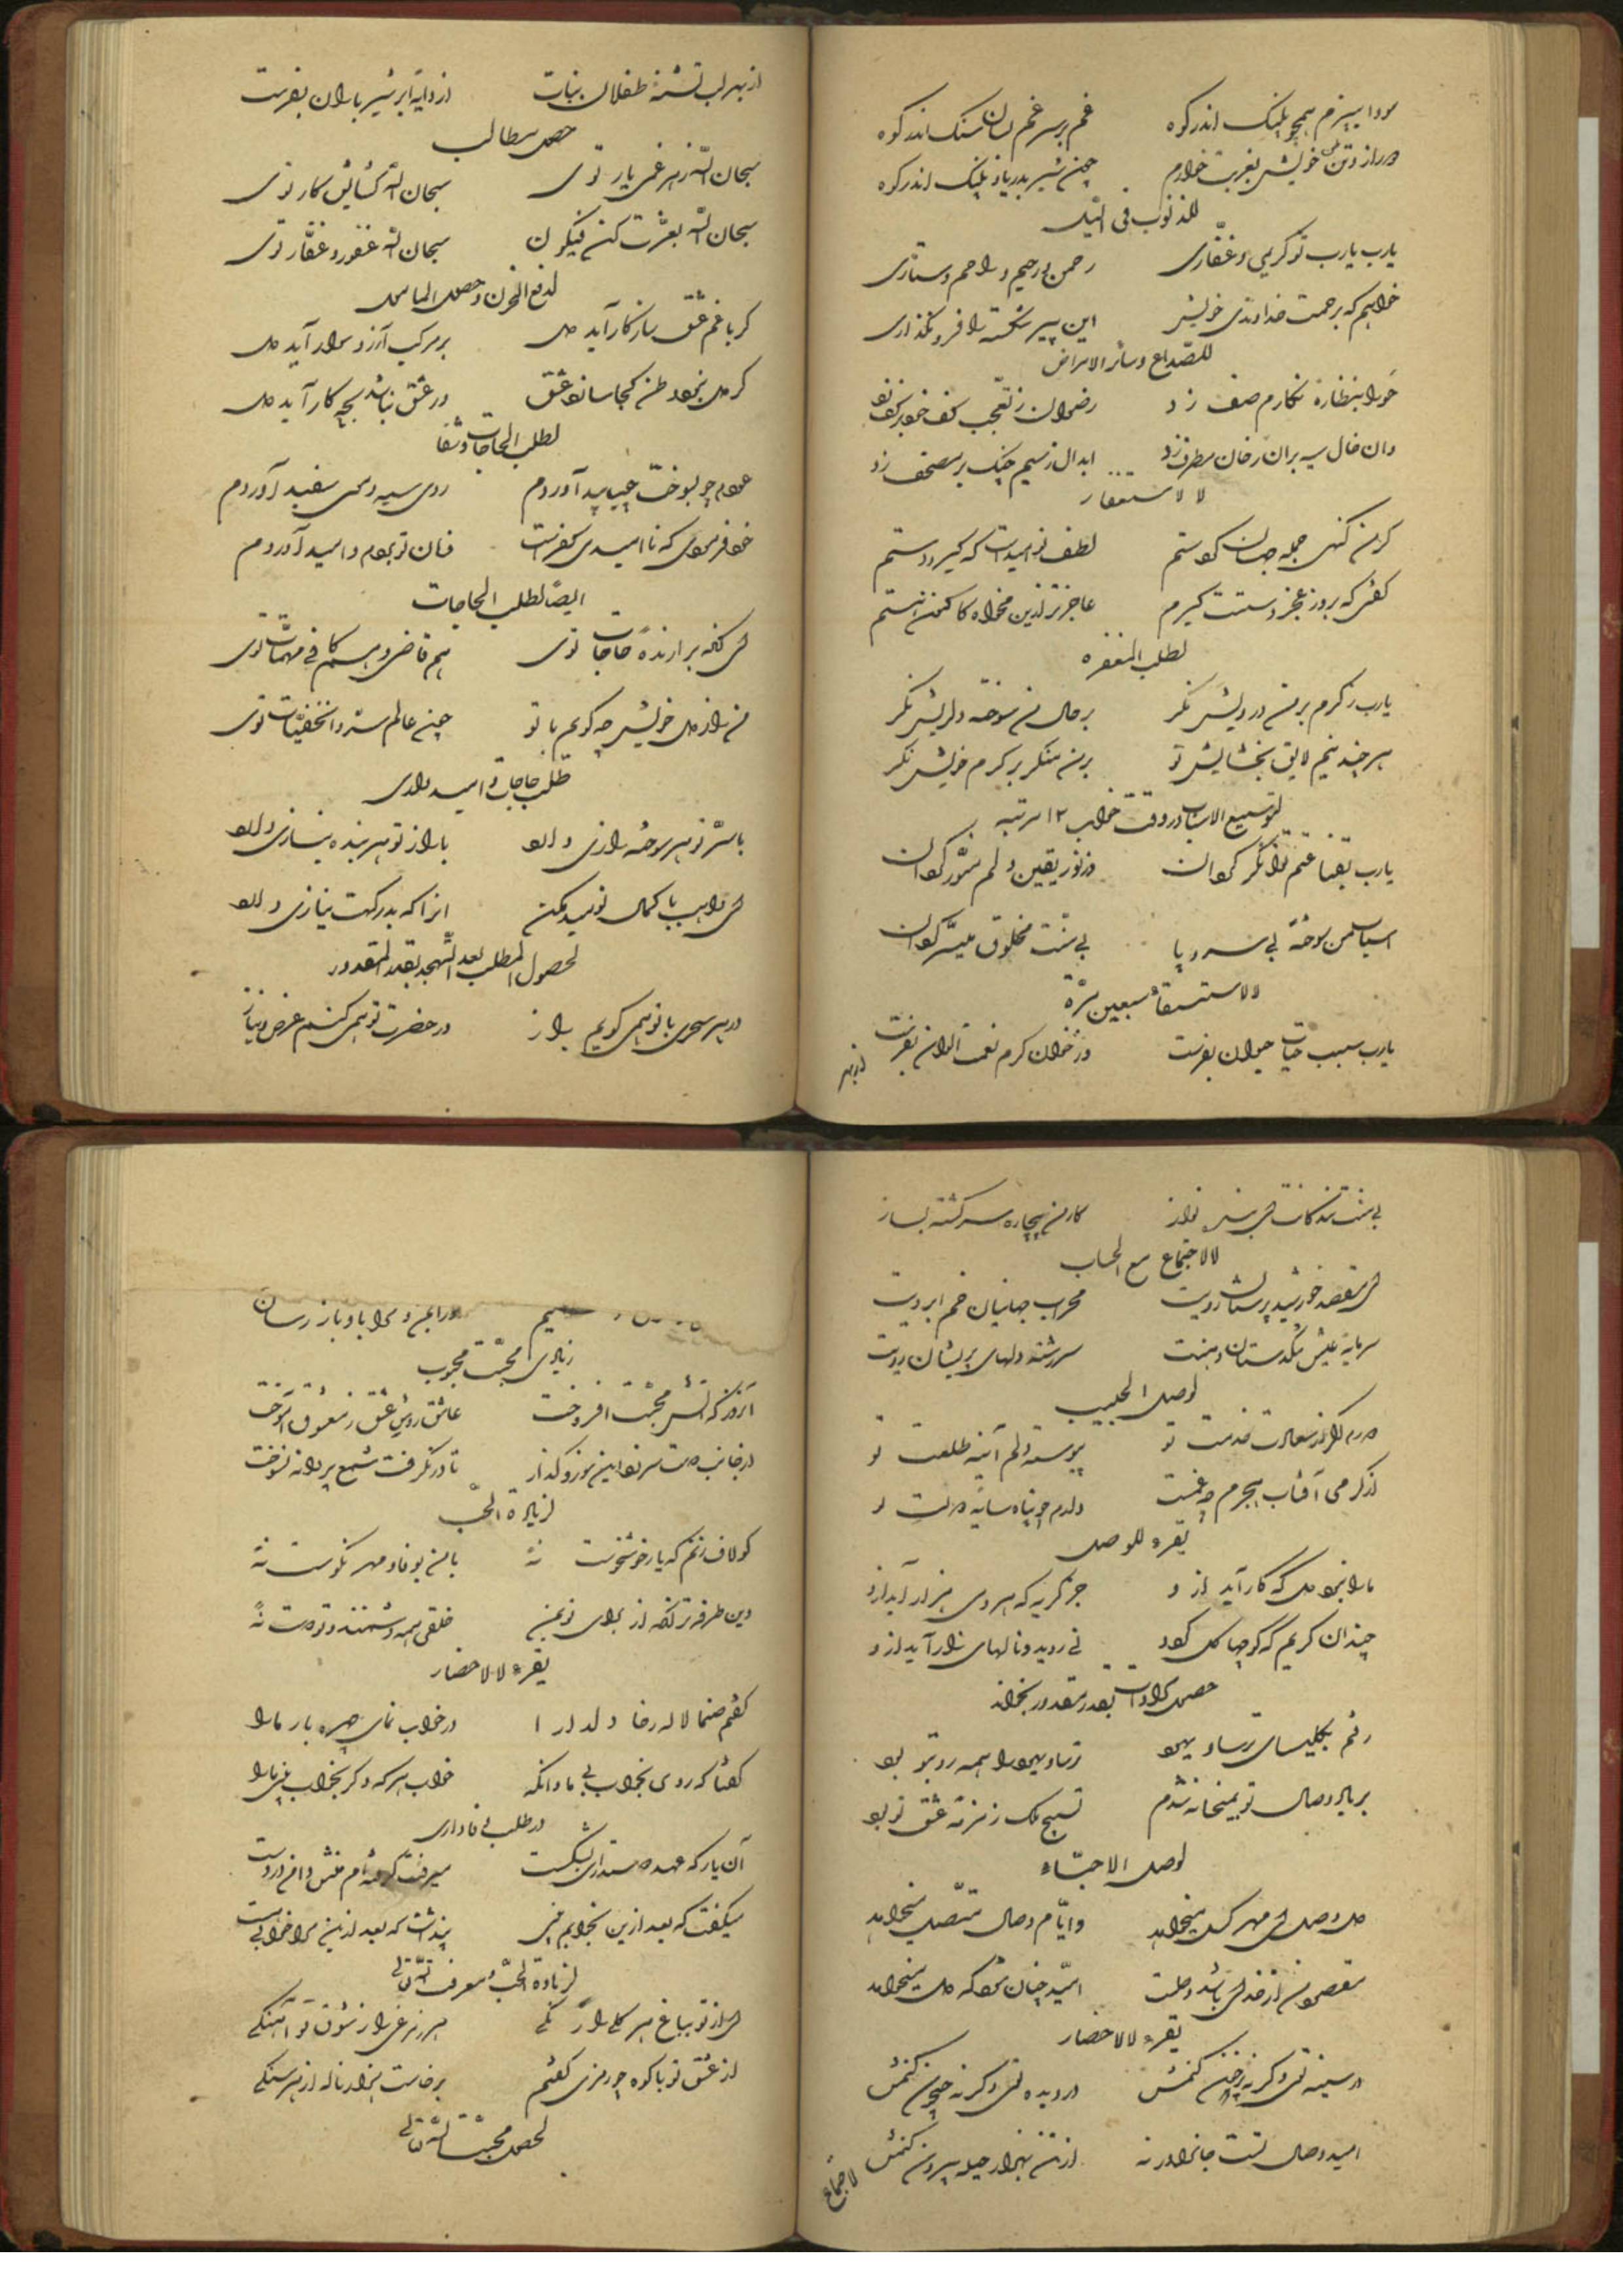 سودا بسرم همچو پلنک اندر کوه غم بر سر غم بسان سنک اندر کوه
دور از وطن خویش بغربت خوارم چون شیر بدریا و پلنک اندر کوه
للذنوب فی اللیل
یارب یارب تو کریمی و غفاری رحمن و رحیم و راحم و ستاری
خواهم که برحمت خداوندی خویش این پیر شکسته را فرو نگذاری
للصداع و سائر الامراض
حورا بنظاره نکارم صف زد رضوان ز تعجب کف خود بر کف زد
وان خال سیه بران رخان مطرف زد ابدال ز بیم چنک بر مصحف زد
للاستغفار
کر من کنه جمله جهان کردستم لطف تو امید است که کیرد دستم
کفتی که بروز عجز دستت کیرم عاجزتر ازین مخواه کاکنون هستم
لطلب المغفره
یارب ز کرم بر من درویش نکر بر حال من سوخته دلریش نکر
هر چند نیم لایق بخشایش تو بر من منکر بر کرم خویش نکر
لتوسیع الاسباب در وقت خواب ۱۲ مرتبه
یارب بقناعتم توانکر کردان وز نور یقین دلم منور کردان
اسباب من سوخته بی سر و پا بی منت مخلوق میسر کردان
للاستسقاء سبعین مرة
یارب سبب حیات حیوان بفرست وز خوان کرم نعمت الوان بفرست
از بهر
از بهر لب تشنه طفلان نبات از دایه ابر شیر باران بفرست
حصول مطالب
سبحان الله ز هر غمی یار توئی سبحان الله کشایش کار توئی
سبحان الله بعزت کن فیکون سبحان الله غفور و غفار توئی
لدفع الحزن و حصول
کر با غم عشق سازکار آید دل بر مرکب آرزو سوار آید دل
کر دل نبود وطن کجا سازد عشق ور عشق نباشد بچه کار آید دل
لطلب الحاجات
روی سیه و موی سفید آوردم
خود فرمودی که ناامیدی کفرست فرمان تو بردم و امید آوردم
ایضا لطلب الحاجات
ای آنکه برآرنده حاجات توئی هم قاضی و هم کافی مهمات توئی
من راز دل خویش چه کویم با تو چون عالم سر و الخفیات توئی
طلب حاجات و امیدواری
با سر تو هر سوخته رازی دارد با راز تو هر بنده نیازی دارد
ای نومید مکن آنرا که بدرکهت نیازی دارد
لحصول المطلب بعد التهجد بقدر المقدور
در هر سحری با تو همی کویم راز در حضرت تو همی کنم عرض نیاز
بی منت بندکانت ای بنده نواز کار من بیچاره سرکشته بساز
للاجتماع مع الاحباب
ای مقصد خورشید پرستان رویت محراب جهانیان خم ابرویت
سرمایه عیش تنکدستان دهنت سررشته دلهای پریشان مویت
لوصل الحبیب
پیوسته دلم آینه طلعت تو
از کرمی آفتاب هجرم چه غمست دارم چو پناه سایه دولت تو
یقرء للوصل
ما را نبود دلی که کار آید ازو جز کریه که هر دمی هزار آید ازو
چندان کریم که کوچها کل کردد نی روید و نالهای زار آید ازو
حصول مرادات بقدر مقدور بخواند
رفتم بکلیسای ترسا و یهود ترسا و یهود را همه رو بتو بود
بر یاد وصال تو ببتخانه شدم تسبیح بتان زمزمه عشق تو بود
لوصل الاحباء
دل وصل ای مهر کسل میخواهد و ایام وصال متصل میخواهد
مقصود من از خدای باشد وصلت امید چنان شود که دل میخواهد
یقرء للاحضار
در سینه توئی وکرنه پر خون کنمش در دیده توئی وکرنه جیحون کنمش
امید وصال تست جانرا ورنه از تن بهزار حیله بیرون کنمش
لاجتماع
زیادی محبت محبوب
آنروز که آتش محبت افروخت عاشق روش عشق ز معشوق آموخت
از جانب دوست سر زد این سوز و کداز تا در نکرفت شمع پروانه نسوخت
لزیادة الحب
کو لاف زنم که یار خوشخوست نه با من بوفا و مهر نکوست نه
وین طرفه تر آنکه از برای تو بمن خلقی همه دشمنند و تو دوست نه
یقرء للاحضار
کفتم صنما لاله رخا دلدارا در خواب نمای چهره باری ما را
کفتا که روی بخواب بی ما وانکه خواهی که دکر بخواب بینی ما را
در طلب وفاداری
آن یار که عهد دوستداری بشکست میرفت و کرفته ام منش دامن در دست
میکفت که بعد ازین بخوابم بینی پنداشت که بعد ازین مرا خوابی هست
لزیادة الحب و معرفت الله تعالی
ای از تو بباغ هر کلی را رنکی هر مرغی را ز شوق تو آهنکی
از عشق تو با کوه چو رمزی کفتم برخاست هزار ناله از هر سنکی
لحصول محبت الله تعالی